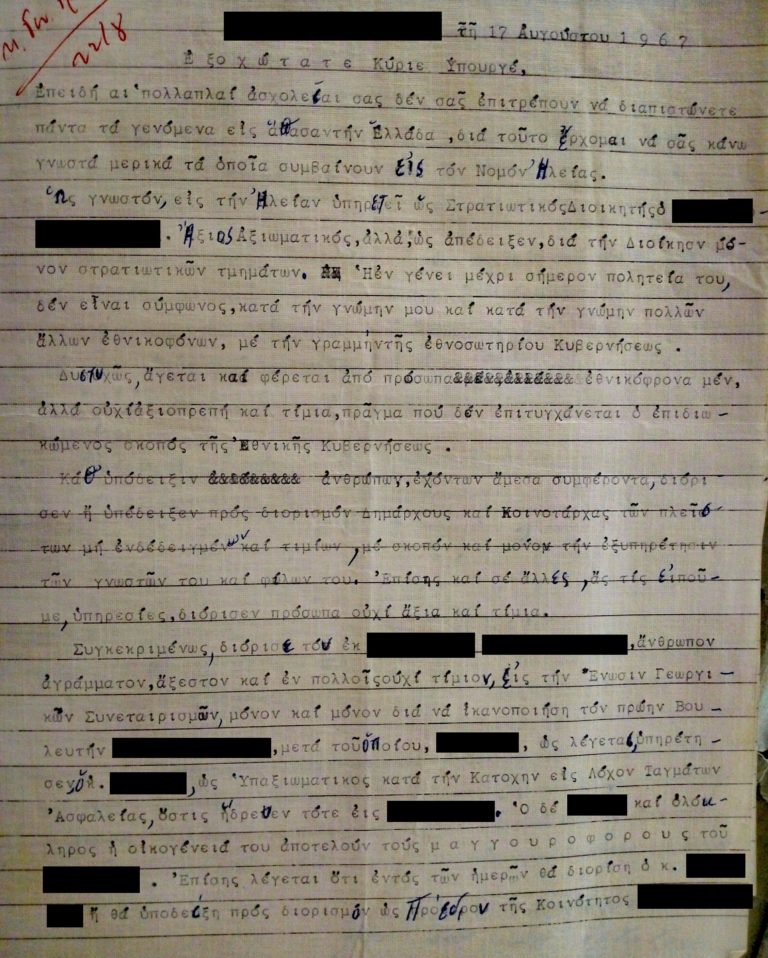 π. Γω. η
22/8
τῇ 17 Αυγούστου 1967
Ε ξ ο χ ώ τ α τ ε Κύριε Υπουργέ,
Επειδή αι πολλαπλαί ἀσχολείαι σας δέν σας ἐπιτρέπουν νά διαπιστώνετε
πάντα τά γενόμενα εἰς ἅπασαντήν Ἑλλάδα ,διά τοῦτο ἔρχομαι νά σᾶς κάνω
γνωστά μερικά τά ὁποῖα συμβαίνουν εἰς τόν Νομόν Ἠλείας.
Ὡς γνωστόν,εἰς τήν Ἠλείαν ὑπηρετεῖ ὡς ΣτρατιωτικόςΔιοικητήςὁ
. Ἄξιος Ἀξιωματικός,ἀλλά,ὡς ἀπέδειξεν,διά τήν Διοίκησν μό-
νον στρατιωτικῶν τμημάτων. Ἡἐν γένει μέχρι σήμερον πολητεία του,
δέν εἶναι σύμφωνος,κατά τήν γνώμην μου καί κατά τήν γνώμην πολλῶν
ἄλλων ἐθνικοφόνων, μέ τήν γραμμήντῆς ἐθνοσωτηρίου Κυβερνήσεως .
Δυστυχῶς,ἄγεται καί φέρεται ἀπό πρόσωπα ἐθνικόφρονα μέν,
ἀλλά οὐχίἀξιοπρεπή καί τίμια,πρᾶγμα πού δέν ἐπιτυγχάνεται ὁ ἐπιδιω-
κώμενος σκοπός τῆς Ἐθνικῆς Κυβερνήσεως .
Κάθ ὑπόδειξιν ἀνθρώπων,ἐχόντων ἄμεσα συμφέροντα,διόρι-
σεν ἤ ὑπέδειξεν πρός διορισμόν Δημάρχους καί Κοινοτάρχας τῶν πλείσ
των μή ἐνδέδειγμένων καί τιμίων ,μέ σκοπόν καί μόνον τήν ἐξυπηρέτησιν
τῶν γνωστῶν του καί φίλων του. Ἐπίσης καί σέ ἄλλες ,ἄς τίς εἰποῦ-
με,ὑπηρεσίες,διόρισεν πρόσωπα οὐχί ἄξια καί τίμια.
Συγκεκριμένως,διόρισε τόν ἐκ ,ἄνθρωπον
ἀγράμματον,ἄξεστον καί ἐν πολλοῖςοὐχί τίμιον, εἰς τήν Ἕνωσιν Γεωργι-
κῶν Συνεταιρισμῶν,μόνον καί μόνον διά νά ἱκανοποιήση τόν πρώην Βου-
λευτήν ,μετά τοῦὁποίου, , ὡς λέγεται,ὑπηρέτη-
σεν,ὁκ. ,ὡς Ὑπαξιωματικος κατά τήν Κατοχην εἰς Λόχον Ταγμάτων
Ἀσφαλείας,ὅστις ἥδρευεν τότε εἰς . Ὁ δέ καί ὁλόκ-
ληρος ἡ οἰκογένειά του ἀποτελοῦν τούς μ α γ γ ο υ ρ ο φ ο ρ ο υ ς τοῦ
. Ἐπίσης λέγεται ὅτι ἐντός τῶν ἡμερῶν θά διορίση ὁ κ.
ἤ θά ὑποδείξη πρός διορισμόν ὡς Πρόεδρον τῆς Κοινότητος